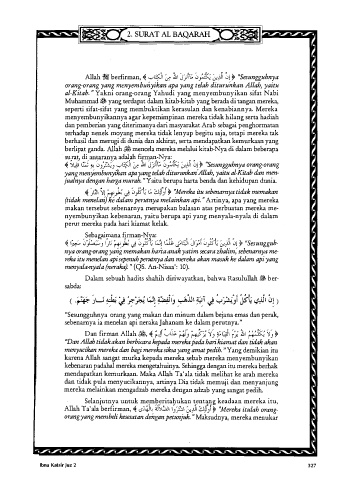 2. SURAT AL BAQARAH
Allah ﷻ berfirman, ﴾ إِنَّ الَّذِينَ يَكْتُمُونَ مَا أَنزَلَ اللَّهُ مِنَ الْكِتَابِ ﴿ "Sesungguhnya
orang-orang yang menyembunyikan apa yang telah diturunkan Allah, yaitu
al-Kitab." Yakni orang-orang Yahudi yang menyembunyikan sifat Nabi
Muhammad ﷺ yang terdapat dalam kitab-kitab yang berada di tangan mereka,
seperti sifat-sifat yang membuktikan kerasulan dan kenabiannya. Mereka
menyembunyikannya agar kepemimpinan mereka tidak hilang serta hadiah
dan pemberian yang diterimanya dari masyarakat Arab sebagai penghormatan
terhadap nenek moyang mereka tidak lenyap begitu saja, tetapi mereka tak
berhasil dan merugi di dunia dan akhirat, serta mendapatkan kemurkaan yang
berlipat ganda. Allah ﷻ mencela mereka melalui kitab-Nya di dalam beberapa
surat, di antaranya adalah firman-Nya:
﴾ إِنَّ الَّذِينَ يَكْتُمُونَ مَا أَنزَلَ اللَّهُ مِنَ الْكِتَابِ وَيَشْتَرُونَ بِهِ ثَمَنًا قَلِيلًا ﴿ "Sesungguhnya orang-orang
yang menyembunyikan apa yang telah diturunkan Allah, yaitu al-Kitab dan men-
jualnya dengan harga murah." Yaitu berupa harta benda dan kehidupan dunia.
﴾ أُولَٰئِكَ مَا يَأْكُلُونَ فِي بُطُونِهِمْ إِلَّا النَّارَ ﴿ "Mereka itu sebenarnya tidak memakan
(tidak menelan) ke dalam perutnya melainkan api." Artinya, apa yang mereka
makan tersebut sebenarnya merupakan balasan atas perbuatan mereka me-
nyembunyikan kebenaran, yaitu berupa api yang menyala-nyala di dalam
perut mereka pada hari kiamat kelak.
Sebagaimana firman-Nya:
﴾ إِنَّ الَّذِينَ يَأْكُلُونَ أَمْوَالَ الْيَتَامَىٰ ظُلْمًا إِنَّمَا يَأْكُلُونَ فِي بُطُونِهِمْ نَارًا وَسَيَصْلَوْنَ سَعِيرًا ﴿ "Sesungguh-
nya orang-orang yang memakan harta anak yatim secara zhalim, sebenarnya me-
reka itu menelan api sepenuh perutnya dan mereka akan masuk ke dalam api yang
menyala-nyala (neraka)." (QS. An-Nisaa': 10).
Dalam sebuah hadits shahih diriwayatkan, bahwa Rasulullah ﷺ ber-
sabda:
( إِنَّ الَّذِي يَأْكُلُ أَوْ يَشْرَبُ فِي آنِيَةِ الذَّهَبِ وَالْفِضَّةِ إِنَّمَا يُجَرْجِرُ فِي بَطْنِهِ نَارَ جَهَنَّمَ. )
"Sesungguhnya orang yang makan dan minum dalam bejana emas dan perak,
sebenarnya ia menelan api neraka Jahanam ke dalam perutnya."
Dan firman Allah ﷻ, ﴾ وَلَا يُكَلِّمُهُمُ اللَّهُ يَوْمَ الْقِيَامَةِ وَلَا يُزَكِّيهِمْ وَلَهُمْ عَذَابٌ أَلِيمٌ ﴿
"Dan Allah tidak akan berbicara kepada mereka pada hari kiamat dan tidak akan
mensucikan mereka dan bagi mereka siksa yang amat pedih." Yang demikian itu
karena Allah sangat murka kepada mereka sebab mereka menyembunyikan
kebenaran padahal mereka mengetahuinya. Sehingga dengan itu mereka berhak
mendapatkan kemurkaan. Maka Allah Ta'ala tidak melihat ke arah mereka
dan tidak pula mensucikannya, artinya Dia tidak memuji dan menyanjung
mereka melainkan mengadzab mereka dengan adzab yang sangat pedih.
Selanjutnya untuk memberitahukan tentang keadaan mereka itu,
Allah Ta'ala berfirman, ﴾ أُولَٰئِكَ الَّذِينَ اشْتَرَوُا الضَّلَالَةَ بِالْهُدَىٰ ﴿ "Mereka itulah orang-
orang yang membeli kesesatan dengan petunjuk." Maksudnya, mereka menukar
Ibnu Katsir Juz 2
327